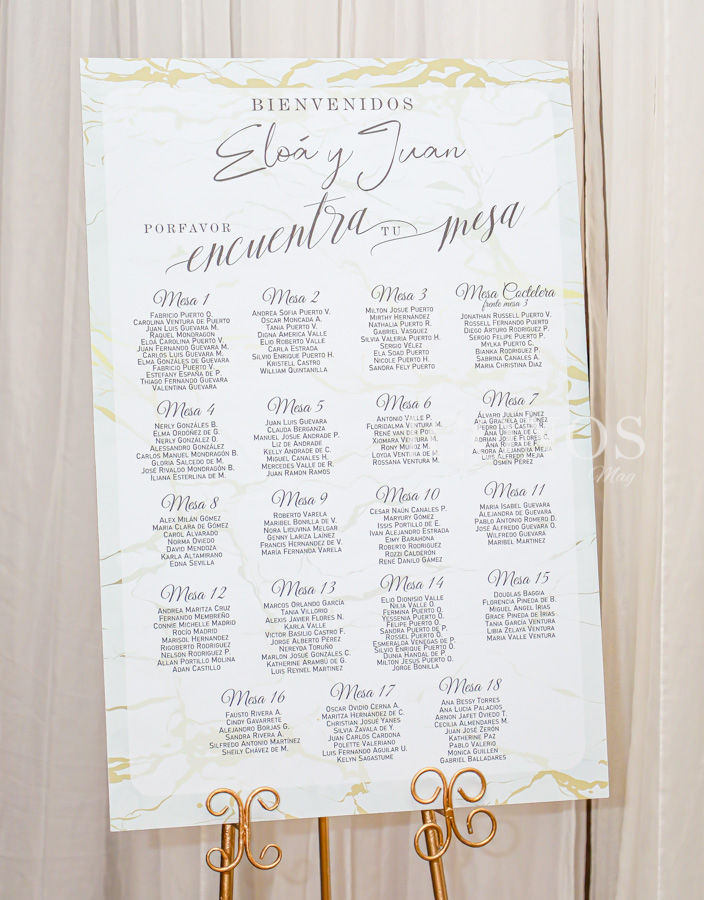 BIENVENIDOS
Eloá y Juan
PORFAVOR encuentra TU mesa
Mesa 1
FABRICIO PUERTO O.
CAROLINA VENTURA DE PUERTO
JUAN LUIS GUEVARA M.
RAQUEL MONDRAGÓN
ELOÁ CAROLINA PUERTO V.
JUAN FERNANDO GUEVARA M.
CARLOS LUIS GUEVARA M.
ELMA GONZÁLES DE GUEVARA
FABRICIO PUERTO V.
ESTEFANY ESPAÑA DE P.
THIAGO FERNANDO GUEVARA
VALENTINA GUEVARA
Mesa 2
ANDREA SOFIA PUERTO V.
OSCAR MONCADA A.
TANIA PUERTO V.
DIGNA AMÉRICA VALLE
ELIO ROBERTO VALLE
CARLA ESTRADA
SILVIO ENRIQUE PUERTO H.
KRISTELL CASTRO
WILLIAM QUINTANILLA
Mesa 3
MILTON JOSUÉ PUERTO
MIRTHY HERNÁNDEZ
NATHALIA PUERTO R.
GABRIEL VASQUEZ
SILVIA VALERIA PUERTO H.
SERGIO VÉLEZ
ELA SOAD PUERTO
NICOLE PUERTO H.
SANDRA FELY PUERTO
Mesa Coctelera
frente mesa 3
JONATHAN RUSSELL PUERTO V.
ROSSELL FERNANDO PUERTO
DIEGO ARTURO RODRIGUEZ P.
SERGIO FELIPE PUERTO P.
MYLKA PUERTO C.
BIANKA RODRIGUEZ P.
SABRINA CANALES A.
MARIA CHRISTINA DIAZ
Mesa 4
NERLY GONZÁLES B.
ELMA ORDOÑEZ DE G.
NERLY GONZÁLEZ O.
ALESSANDRO GONZÁLEZ
CARLOS MANUEL MONDRAGÓN B.
GLORIA SALCEDO DE M.
JOSÉ RIVALDO MONDRAGÓN B.
ILIANA ESTERLINA DE M.
Mesa 5
JUAN LUIS GUEVARA
CLAUDA BERGANZA
MANUEL JOSUE ANDRADE P.
LIZ DE ANDRADE
KELLY ANDRADE DE C.
MIGUEL CANALES H.
MERCEDES VALLE DE R.
JUAN RAMON RAMOS
Mesa 6
ANTONIO VALLE P.
FLORIDALMA VENTURA M.
RENÉ VAN DER POOL
XIOMARA VENTURA M.
RONY MUÑOZ M.
LOYDA VENTURA DE M.
ROSSANA VENTURA M.
Mesa 7
ÁLVARO JULIÁN FÚNEZ
ANA GRACIELA DE FÚNEZ
PEDRO LUIS CASTRO R.
ANA URBINA DE C.
ADRIAN JOSUÉ FLORES C.
RIVERA DE F.
AURORA ALEJANDRA MEJIA
LUIS ALFREDO MEJIA
OSMÍN PEREZ
OS
Mag
Mesa 8
ALEX MILÁN GÓMEZ
MARIA CLARA DE GÓMEZ
CAROL ALVARADO
NORMA OVIEDO
DAVID MENDOZA
KARLA ALTAMIRANO
EDNA SEVILLA
Mesa 9
ROBERTO VARELA
MARIBEL BONILLA DE V.
NORA LIDUVINA MELGAR
GENNY LARIZA LAÍNEZ
FRANCIS HERNÁNDEZ DE V.
MARÍA FERNANDA VARELA
Mesa 10
CESAR NAÚN CANALES P.
MARYURY GÓMEZ
ISSIS PORTILLO DE E.
IVAN ALEJANDRO ESTRADA
EIMY BARAHONA
ROBERTO RODRIGUEZ
ROZZI CALDERÓN
RENÉ DANILO GÁMEZ
Mesa 11
MARIA ISABEL GUEVARA
ALEJANDRA DE GUEVARA
PABLO ANTONIO ROMERO D.
JOSÉ ALFREDO GUEVARA O.
WILFREDO GUEVARA
MARIBEL MARTINEZ
Mesa 12
ANDREA MARITZA CRUZ
FERNANDO MEMBREÑO
CONNIE MICHELLE MADRID
ROCÍO MADRID
MARISOL HERNANDEZ
RIGOBERTO RODRIGUEZ
NELSON RODRIGUEZ P.
ALLAN PORTILLO MOLINA
ADAN CASTILLO
Mesa 13
MARCOS ORLANDO GARCÍA
TANIA VILLORIO
ALEXIS JAVIER FLORES N.
KARLA VALLE
VICTOR BASILIO CASTRO F.
JORGE ALBERTO PÉREZ
NEREYDA TORUÑO
MARLON JOSUÉ GONZÁLES C.
KATHERINE ARAMBÚ DE G.
LUIS REYNEL MARTINEZ
Mesa 14
ELIO DIONISIO VALLE
NILIA VALLE O.
FERMINA PUERTO O.
YESSENIA PUERTO O.
FELIPE PUERTO O.
SANDRA PUERTO DE P.
ROSSEL PUERTO O.
ESMERALDA VENEGAS DE P.
SILVIO ENRIQUE PUERTO O.
DUNIA HANDAL DE P.
MILTON JESUS PUERTO O.
JORGE BONILLA
Mesa 15
DOUGLAS BAGGIA
FLORENCIA PINEDA DE B.
MIGUEL ANGEL IRIAS
GRACE PINEDA DE IRIAS
TANIA GARCÍA VENTURA
LIBIA ZELAYA VENTURA
MARIA VALLE VENTURA
Mesa 16
FAUSTO RIVERA A.
CINDY GAVARRETE
ALEJANDRO BORJAS G.
SANDRA RIVERA A.
SILFREDO ANTONIO MARTÍNEZ
SHEILY CHÁVEZ DE M.
Mesa 17
OSCAR OVIDIO CERNA A.
MARITZA HERNÁNDEZ DE C.
CHRISTIAN JOSUÉ YANES
SILVIA ZAVALA DE Y.
JUAN CARLOS CARDONA
POLETTE VALERIANO
LUIS FERNANDO AGUILAR U.
KELYN SAGASTUME
Mesa 18
ANA BESSY TORRES
ANA LUCIA PALACIOS
ARNON JAFET OVIEDO T.
CECILIA ALMENDARES M.
JUAN JOSÉ ZERÓN
KATHERINE PAZ
PABLO VALERIO
MONICA GUILLEN
GABRIEL BALLADARES